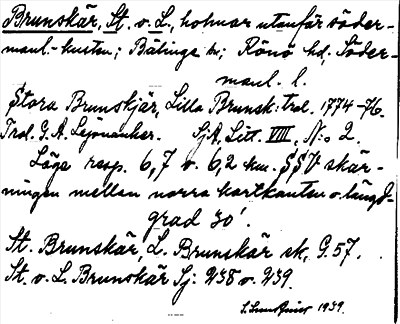 Brunskär, St. o. L., holmar utanför söder-
manl.-kusten; Bälinge sn; Rönö hd, Söder-
manl. l.
Stora Brunskjär, Lilla Brunsk: trol. 1774-76.
Trol. G. A. Lejonanker. SjA, Litt. VIII, No 2.
Läge resp. 6,7 o. 6,2 km. SSV skär-
ningen mellan norra kartkanten o. längd-
grad 30'.
St. Brunskär, L. Brunskär sk, G. 57.
St. o. L. Brunskär Sj: 238 o. 239.
1939.